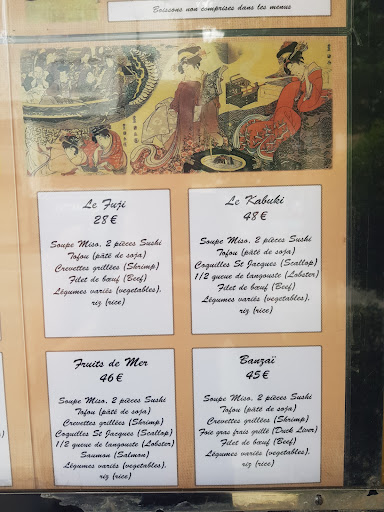 Boissons non comprises dans les menus
Le Fuji
28 €
Soupe Miso, 2 pièces Sushi
Tofou (pâte de soja)
Crevettes grillées (Shrimp)
Filet de bœuf (Beef)
Légumes variés (vegetables),
riz (rice)
Le Kabuki
48 €
Soupe Miso, 2 pièces Sushi
Tofou (pâte de soja)
Coquilles St Jacques (Scallop)
1/2 queue de langouste (Lobster)
Filet de bœuf (Beef)
Légumes variés (vegetables),
riz (rice)
Fruits de Mer
46 €
Soupe Miso, 2 pièces Sushi
Tofou (pâte de soja)
Crevettes grillées (Shrimp)
Coquilles St Jacques (Scallop)
1/2 queue de langouste (Lobster)
Saumon (Salmon)
Légumes variés (vegetables),
riz (rice)
Banzaï
45 €
Soupe Miso, 2 pièces Sushi
Tofou (pâte de soja)
Crevettes grillées (Shrimp)
Foie gras frais grillé (Duck Liver)
Filet de bœuf (Beef)
Légumes variés (vegetables),
riz (rice)